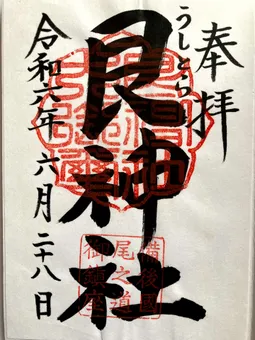 奉拝
うしとら
艮神社
令和六年六月二十八日
備後國
尾之道
御鎮座